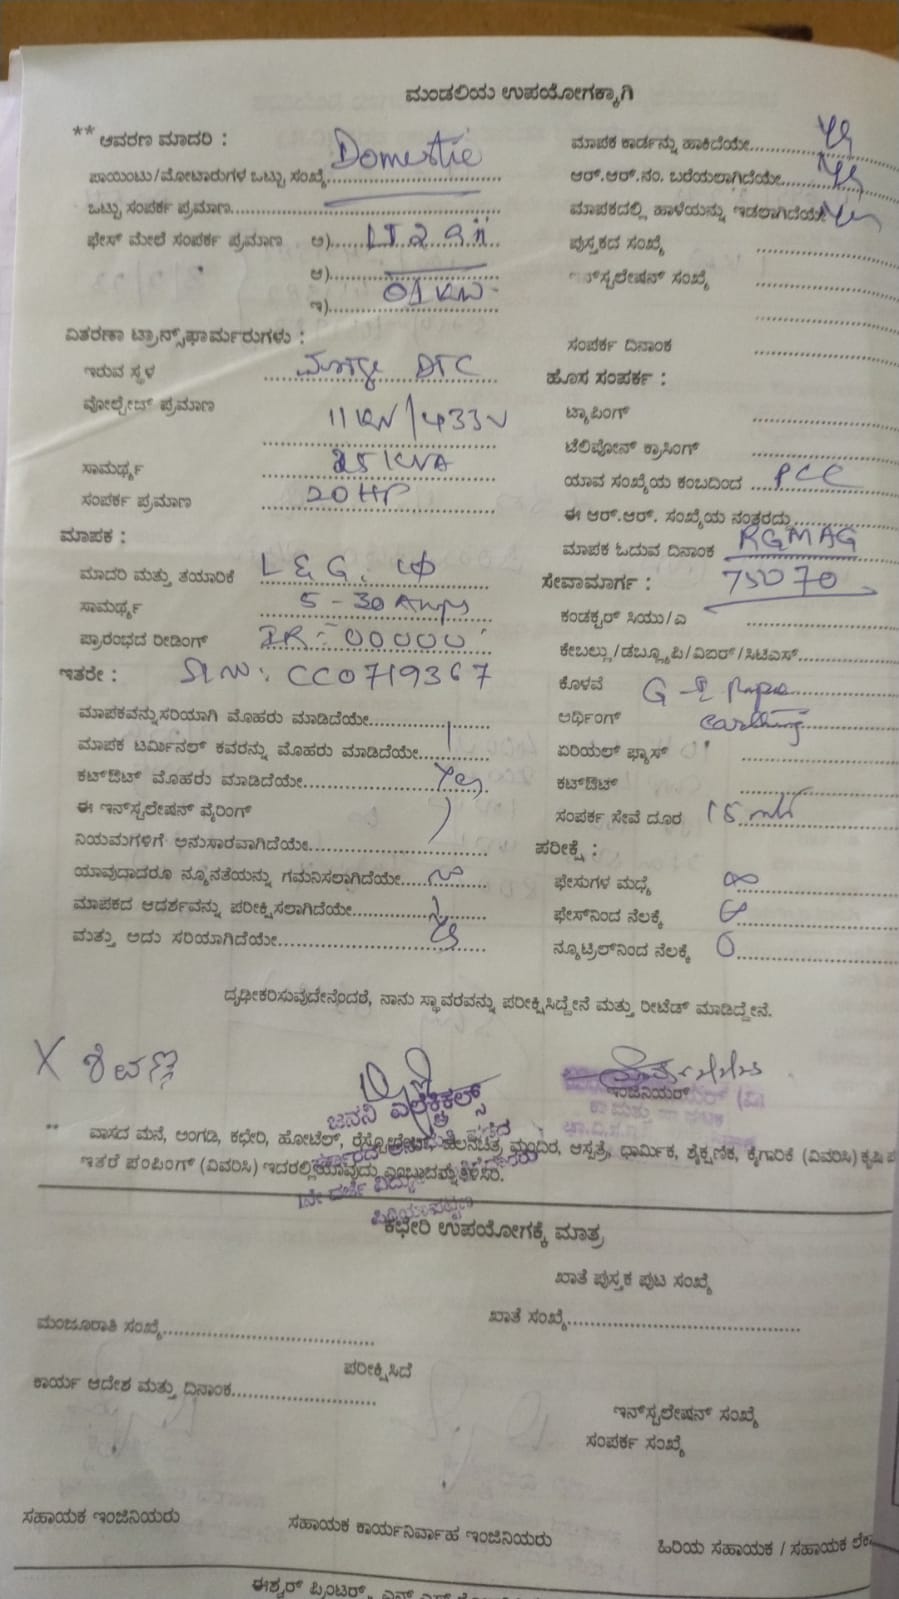 ಮಂಡಲಿಯ ಉಪಯೋಗಕ್ಕಾಗಿ
** ಆವರಣ ಮಾದರಿ :
Domestic
ಪಾಯಿಂಟು/ಮೋಟಾರುಗಳ ಒಟ್ಟು ಸಂಖ್ಯೆ
ಒಟ್ಟು ಸಂಪರ್ಕ ಪ್ರಮಾಣ
ಫೇಸ್ ಮೇಲೆ ಸಂಪರ್ಕ ಪ್ರಮಾಣ ಅ)
ಆ)
ಇ) 01 KW
ವಿತರಣಾ ಟ್ರಾನ್ಸ್‌ಫಾರ್ಮರುಗಳು :
ಇರುವ ಸ್ಥಳ DTC
ವೋಲ್ಟೇಜ್ ಪ್ರಮಾಣ 11KV/433V
ಸಾಮರ್ಥ್ಯ 25 KVA
ಸಂಪರ್ಕ ಪ್ರಮಾಣ 20 HP
ಮಾಪಕ :
ಮಾದರಿ ಮತ್ತು ತಯಾರಿಕೆ L & G, 1Φ
ಸಾಮರ್ಥ್ಯ 5-30 Amps
ಪ್ರಾರಂಭದ ರೀಡಿಂಗ್ IR = 00000
ಇತರೇ : Sl No: CC0719367
ಮಾಪಕವನ್ನು ಸರಿಯಾಗಿ ಮೊಹರು ಮಾಡಿದೆಯೇ
ಮಾಪಕ ಟರ್ಮಿನಲ್ ಕವರನ್ನು ಮೊಹರು ಮಾಡಿದೆಯೇ
ಕಟ್‌ಔಟ್ ಮೊಹರು ಮಾಡಿದೆಯೇ Yes
ಈ ಇನ್‌ಸ್ಟಲೇಷನ್ ವೈರಿಂಗ್
ನಿಯಮಗಳಿಗೆ ಅನುಸಾರವಾಗಿದೆಯೇ
ಯಾವುದಾದರೂ ನ್ಯೂನತೆಯನ್ನು ಗಮನಿಸಲಾಗಿದೆಯೇ
ಮಾಪಕದ ಆದರ್ಶವನ್ನು ಪರೀಕ್ಷಿಸಲಾಗಿದೆಯೇ
ಮತ್ತು ಅದು ಸರಿಯಾಗಿದೆಯೇ Yes
ಮಾಪಕ ಕಾರ್ಡನ್ನು ಹಾಕಿದೆಯೇ Yes
ಆರ್.ಆರ್.ನಂ. ಬರೆಯಲಾಗಿದೆಯೇ Yes
ಮಾಪಕದಲ್ಲಿ ಹಾಳೆಯನ್ನು ಇಡಲಾಗಿದೆಯೇ Yes
ಪುಸ್ತಕದ ಸಂಖ್ಯೆ
ಇನ್‌ಸ್ಟಲೇಷನ್ ಸಂಖ್ಯೆ
ಸಂಪರ್ಕ ದಿನಾಂಕ
ಹೊಸ ಸಂಪರ್ಕ :
ಟ್ಯಾಪಿಂಗ್
ಟೆಲಿಪೋನ್ ಕ್ರಾಸಿಂಗ್
ಯಾವ ಸಂಖ್ಯೆಯ ಕಂಬದಿಂದ PCC
ಈ ಆರ್.ಆರ್. ಸಂಖ್ಯೆಯ ನಂತರದ್ದು
ಮಾಪಕ ಓದುವ ದಿನಾಂಕ RGMAG
ಸೇವಾಮಾರ್ಗ : 75070
ಕಂಡಕ್ಟರ್ ಸಿಯು/ಎ
ಕೇಬಲ್ಲು/ಡಬ್ಲ್ಯೂಪಿ/ವಿಐಆರ್/ಸಿಟಿಎಸ್
ಕೊಳವೆ G-I pipe
ಅರ್ಥಿಂಗ್ earthing
ಏರಿಯಲ್ ಫ್ಯಾಸ್
ಕಟ್‌ಔಟ್
ಸಂಪರ್ಕ ಸೇವೆ ದೂರ 15
ಪರೀಕ್ಷೆ :
ಫೇಸುಗಳ ಮಧ್ಯೆ ∞
ಫೇಸ್‌ನಿಂದ ನೆಲಕ್ಕೆ
ನ್ಯೂಟ್ರಲ್‌ನಿಂದ ನೆಲಕ್ಕೆ 0
ದೃಢೀಕರಿಸುವುದೇನೆಂದರೆ, ನಾನು ಸ್ಥಾವರವನ್ನು ಪರೀಕ್ಷಿಸಿದ್ದೇನೆ ಮತ್ತು ರೀಟೆಡ್ ಮಾಡಿದ್ದೇನೆ.
X ಶಿವಣ್ಣ
ಇಂಜಿನಿಯರ್
ಜನನಿ ಎಲೆಕ್ಟ್ರಿಕಲ್ಸ್
** ವಾಸದ ಮನೆ, ಅಂಗಡಿ, ಕಛೇರಿ, ಹೋಟೆಲ್, ರೆಸ್ಟೋರೆಂಟ್, ಚಲನಚಿತ್ರ ಮಂದಿರ, ಆಸ್ಪತ್ರೆ, ಧಾರ್ಮಿಕ, ಶೈಕ್ಷಣಿಕ, ಕೈಗಾರಿಕೆ (ವಿವರಿಸಿ) ಕೃಷಿ
ಇತರೆ ಪಂಪಿಂಗ್ (ವಿವರಿಸಿ) ಇದರಲ್ಲಿ ಯಾವುದು ಎಂಬುದನ್ನು ತಿಳಿಸಿರಿ.
ಕಛೇರಿ ಉಪಯೋಗಕ್ಕೆ ಮಾತ್ರ
ಖಾತೆ ಪುಸ್ತಕ ಪುಟ ಸಂಖ್ಯೆ
ಮಂಜೂರಾತಿ ಸಂಖ್ಯೆ
ಖಾತೆ ಸಂಖ್ಯೆ
ಪರೀಕ್ಷಿಸಿದೆ
ಕಾರ್ಯ ಆದೇಶ ಮತ್ತು ದಿನಾಂಕ
ಇನ್‌ಸ್ಟಲೇಷನ್ ಸಂಖ್ಯೆ
ಸಂಪರ್ಕ ಸಂಖ್ಯೆ
ಸಹಾಯಕ ಇಂಜಿನಿಯರು
ಸಹಾಯಕ ಕಾರ್ಯನಿರ್ವಾಹ ಇಂಜಿನಿಯರು
ಹಿರಿಯ ಸಹಾಯಕ / ಸಹಾಯಕ
ಈಶ್ವರ್ ಪ್ರಿಂಟರ್ಸ್,